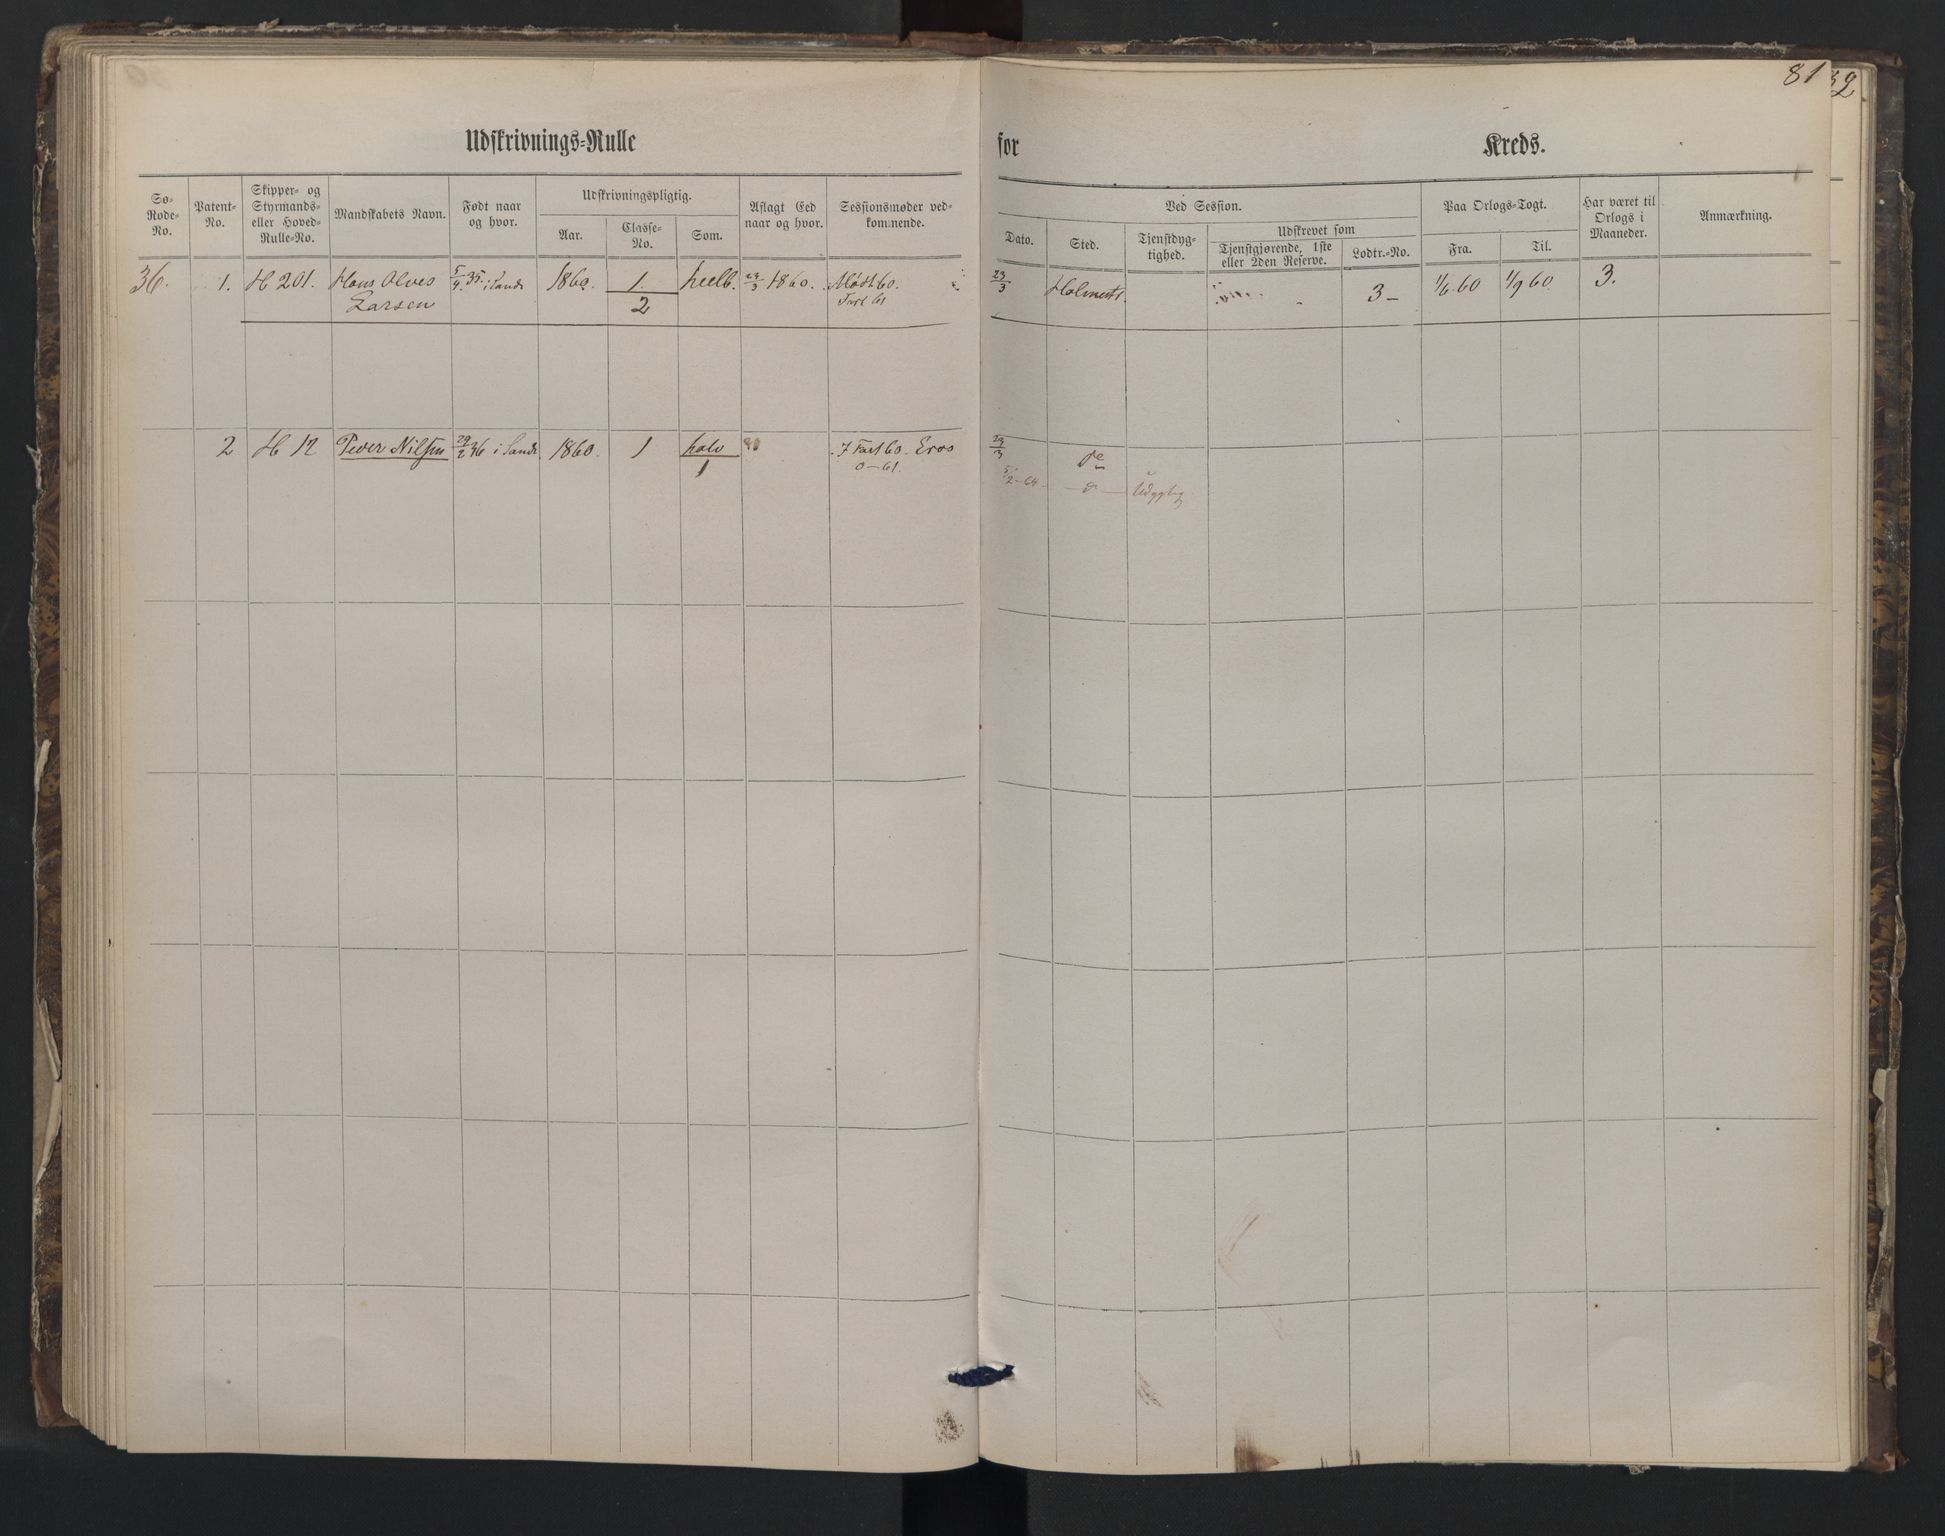 81
32
Udskrivnings-Rulle for Kreds.
Sø-Rode-No.
Patent-No.
Skipper- og Styrmands- eller Hoved-Rulle-No.
Mandskabets Navn.
Født naar og hvor.
Udskrivningspligtig.
Aar.
Classe-No.
Som.
Aflagt Eed naar og hvor.
Sessionsmøder vedkommende.
Ved Session.
Dato.
Sted.
Tjenstdygtighed.
Udskrevet som
Tjenstgjørende, 1ste eller 2den Reserve.
Lodtr.-No.
Paa Orlogs-Togt.
Fra.
Til.
Har været til Orlogs i Maaneder.
Anmærkning.
36. 1. H 201. Hans Olves 5/4 35. i Sande 1860. 1. heelb. 23/3 1860. Mødt 60. 23/3 Holmests. 3 1/6 60 1/9 60 3.
Larsen 2 Fart 61
2 H 12 Peder Nilsen 29/2 36 i Sande 1860. 1 halv 7 Fart 60. 23/3 do
1 0-61. 5/2-64 do Udygtig